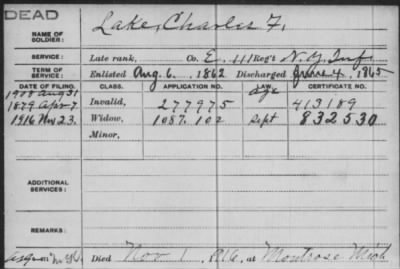 DEAD
NAME OF SOLDIER: Lake, Charles F.
SERVICE: Late rank, Co. E, 111 Reg't N.Y. Inf.
TERM OF SERVICE: Enlisted Aug. 6, 1862 Discharged June 4, 1865
DATE OF FILING. CLASS. APPLICATION NO. LAW. CERTIFICATE NO.
Aug 31 age
1879 Apr 7 Invalid, 277975 413189
1916 Nov 23. Widow, 1087.102 Sept 832530
Minor,
ADDITIONAL SERVICES:
REMARKS:
Died Nov 1, 1916, at Montrose Mich